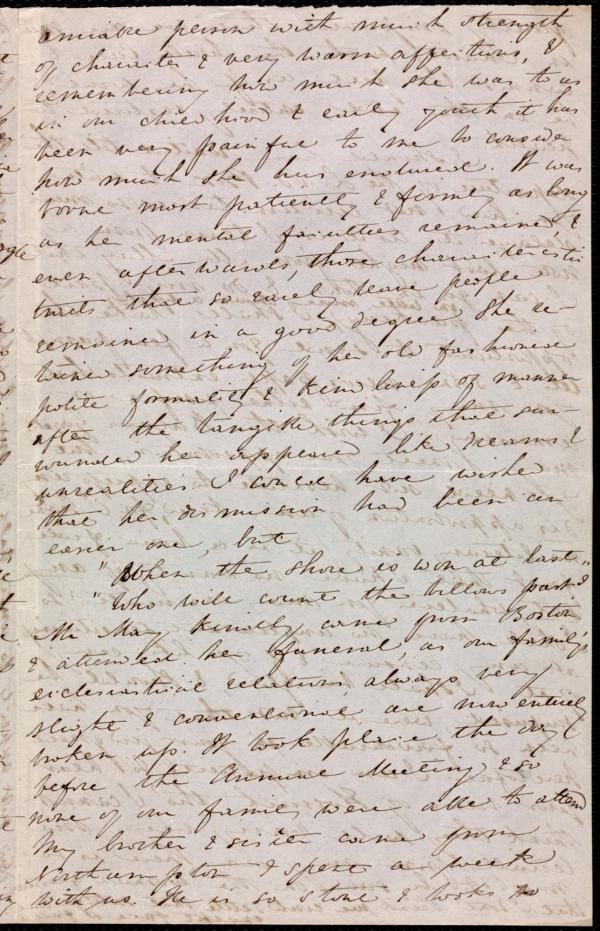 amiable person with much strength
of character & very warm affections, &
remembering how much she was to us
in our childhood & early youth it has
been very painful to me to consider
how much she has endured. It was
borne most patiently & firmly as long
as her mental faculties remained, &
even afterwards, those characteristic
traits that so rarely leave people
remained in a good degree. She re-
tained something of her old fashioned
polite formality & kindliness of manner
after the tangible things that sur-
rounded her appeared like dreams &
unrealities. I could have wished
that her dismission had been an
easier one, but
"When the shore is won at last,"
"Who will count the billows past?
Mr May kindly came from Boston
& attended her funeral, as our family's
ecclesiastical relations, always very
slight & conventional are now entirely
broken up. It took place the day
before the Annual Meeting & so
none of our family were able to attend
My brother & sister came from
Northampton & spent a week
with us. He is so stout & looks so